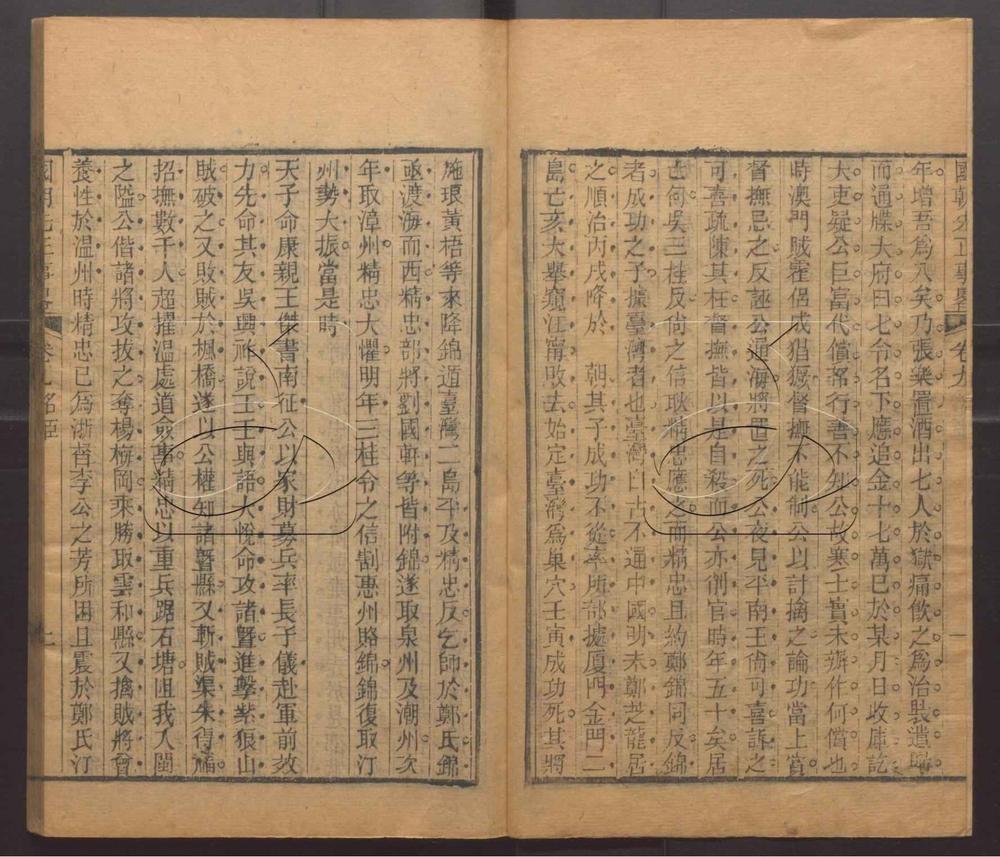 國朝先正事略 卷九
年增吾為八矣乃張樂置酒出七人於獄痛飲之為治裝遣歸
而通牒大府曰七令名下應追金十七萬已於某月日收庫訖
大吏疑公巨富代償諾行善不知公故寒士實未辦作何償也
時澳門賊霍侶成猖獗督撫不能制公以計擒之論功當上賞
督撫忌之反誣公通海將置之死公夜見平南王尚可喜訴之
可喜疏陳其枉督撫皆以是自殺而公亦削官時年五十矣居
亡何吳三桂反尚之信耿精忠應之而精忠且約鄭錦同反錦
者成功之子據臺灣者也臺灣自古不通中國明末鄭芝龍居
之順治丙戌降於 朝其子成功不從率所部據厦門金門二
島亡亥大舉窺江甯敗去始定臺灣為巢穴壬寅成功死其將
施琅黃梧等來降錦遁臺灣二島平及精忠反乞師於鄭氏錦
亟渡海而西精忠部將劉國軒等皆附錦遂取泉州及潮州次
年取漳州精忠大懼明年三桂令之信割惠州賂錦錦復取汀
州勢大振當是時
天子命康親王傑書南征公以家財募兵率長子儀赴軍前效
力先命其友吳興祚說王王與語大悅命攻諸暨進擊紫狼山
賊破之又敗賊於楓橋遂以公權知諸暨縣又斬賊渠朱得福
招撫數千人超擢溫處道僉事精忠以重兵踞石塘阻我入閩
之隘公偕諸將攻拔之奪楊梅岡乘勝取雲和縣又擒賊將曾
養性於溫州時精忠已為浙督李公之芳所困且震於鄭氏汀
國朝先正事略 卷九 名臣